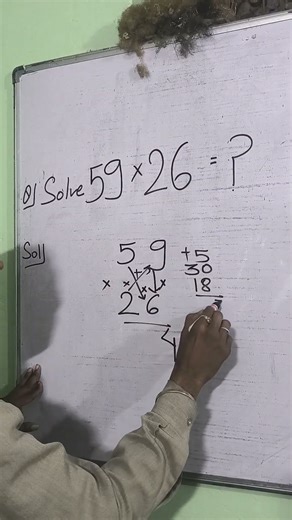 Q1 Solve 59 × 26 = ?
Soll
5 9
× 2 6
4
+5
30
18